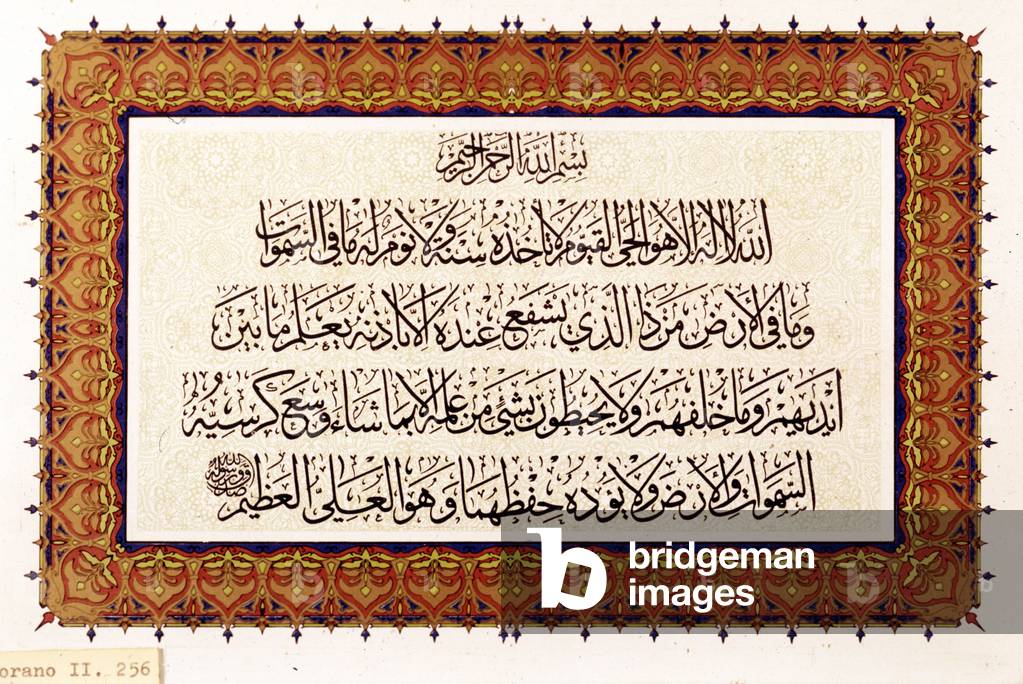 بِسْمِ اللّٰهِ الرَّحْمٰنِ الرَّحِيْمِ
اللّٰهُ لَا اِلٰهَ اِلَّا هُوَ الْحَيُّ الْقَيُّوْمُ لَا تَأْخُذُهٗ سِنَةٌ وَّلَا نَوْمٌ لَهٗ مَا فِي السَّمٰوَاتِ
وَمَا فِي الْاَرْضِ مَنْ ذَا الَّذِيْ يَشْفَعُ عِنْدَهٗ اِلَّا بِاِذْنِهٖ يَعْلَمُ مَا بَيْنَ
اَيْدِيْهِمْ وَمَا خَلْفَهُمْ وَلَا يُحِيْطُوْنَ بِشَيْءٍ مِنْ عِلْمِهٖ اِلَّا بِمَا شَاءَ وَسِعَ كُرْسِيُّهُ
السَّمٰوَاتِ وَالْاَرْضَ وَلَا يَؤُدُهٗ حِفْظُهُمَا وَهُوَ الْعَلِيُّ الْعَظِيْمُ
صدق الله ورسوله
bridgeman
images
orano II. 256